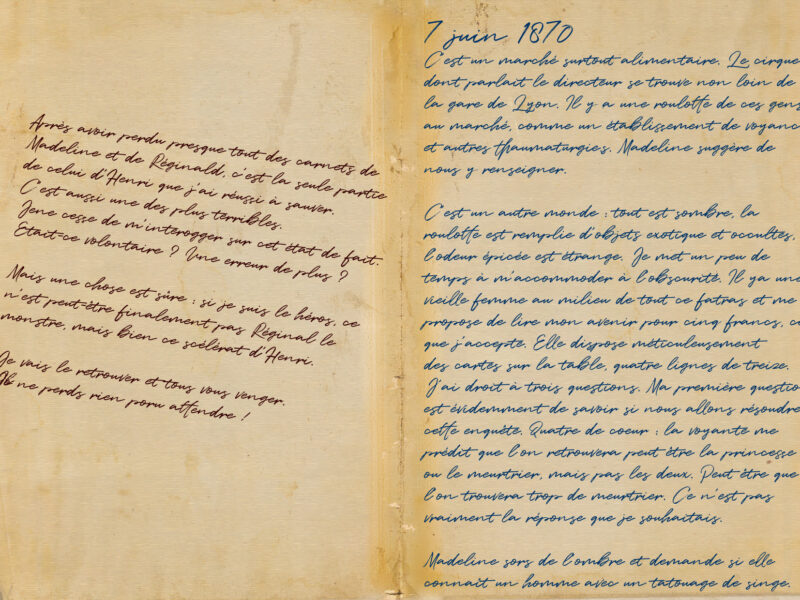 Après avoir perdu presque tout des carnets de
Madeline et de Réginald, c'est la seule partie
de celui d'Henri que j'ai réussi à sauver.
C'est aussi une des plus terribles.
Jene cesse de m'interogger sur cet état de fait.
Etait-ce volontaire ? Une erreur de plus ?
Mais une chose est sûre : si je suis le héros, ce
n'est peut-être finalement pas Réginal le
monstre, mais bien ce scélérat d'Henri.
Je vais le retrouver et tous vous venger.
Il ne perds rien poru attendre !
7 juin 1870
C'est un marché surtout alimentaire. Le cirque
dont parlait le directeur se trouve non loin de
la gare de Lyon. Il y a une roulotte de ces gens
au marché, comme un établissement de voyance
et autres thaumaturgies. Madeline suggère de
nous y renseigner.
C'est un autre monde : tout est sombre, la
roulotte est remplie d'objets exotique et occultes,
l'odeur épicée est étrange. Je met un peu de
temps à m'accommoder à l'obscurité. Il ya une
vieille femme au milieu de tout ce fatras et me
propose de lire mon avenir pour cinq francs, ce
que j'accepte. Elle dispose méticuleusement
des cartes sur la table, quatre lignes de treize.
J'ai droit à trois questions. Ma première question
est évidemment de savoir si nous allons résoudre
cette enquête. Quatre de coeur : la voyante me
prédit que l'on retrouvera peut être la princesse
ou le meurtrier, mais pas les deux. Peut être que
l'on trouvera trop de meurtrier. Ce n'est pas
vraiment la réponse que je souhaitais.
Madeline sors de l'ombre et demande si elle
connait un homme avec un tatouage de singe.